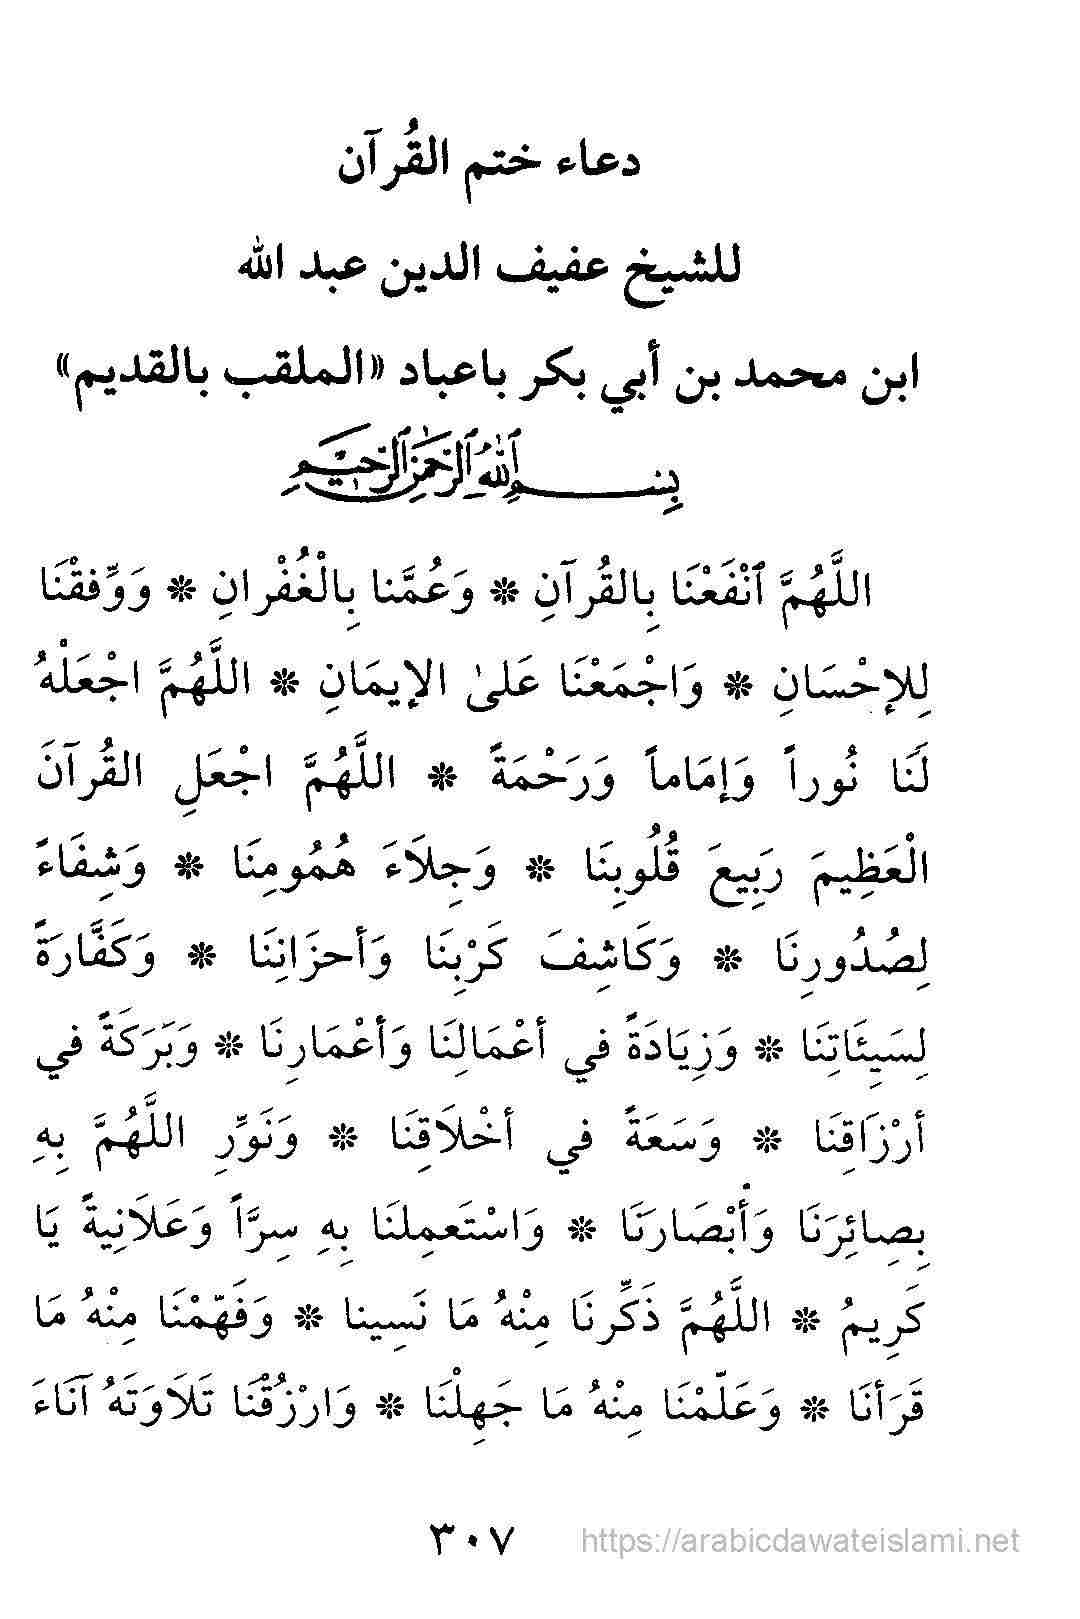 دعاء ختم القُرآن
للشيخ عفيف الدين عبد الله
ابن محمد بن أبي بكر باعباد «الملقب بالقديم»
بِسْمِ اللهِ الرَّحْمٰنِ الرَّحِيْمِ
اللَّهُمَّ ٱنْفَعْنَا بِالقُرآنِ ❊ وَعُمَّنا بِالْغُفْرانِ ❊ وَوِّفقْنَا
لِلإحْسَانِ ❊ وَاجْمَعْنَا عَلىٰ الإيمَانِ ❊ اللَّهُمَّ اجْعَلْهُ
لَنَا نُوراً وَإمَاماً وَرَحْمَةً ❊ اللَّهُمَّ اجْعَلِ القُرآنَ
الْعَظِيمَ رَبِيعَ قُلُوبِنَا ❊ وَجِلَاءَ هُمُومِنَا ❊ وَشِفَاءً
لِصُدُورِنَا ❊ وَكَاشِفَ كَرْبِنَا وَأحزَانِنَا ❊ وَكَفَّارَةً
لِسَيِئَاتِنَا ❊ وَزِيَادَةً في أعْمَالِنَا وَأعْمَارِنَا ❊ وَبَرَكَةً في
أرْزَاقِنَا ❊ وَسَعَةً في أخْلَاقِنَا ❊ وَنَوِّرِ اللَّهُمَّ بِهِ
بِصائِرَنَا وَأبْصَارَنَا ❊ وَاسْتَعمِلنَا بِهِ سِرَّاً وَعَلَانِيةً يَا
كَرِيمُ ❊ اللَّهُمَّ ذَكِّرنَا مِنْهُ مَا نَسِينا ❊ وَفَهّمْنَا مِنْهُ مَا
قَرَأنَا ❊ وَعَلّمْنَا مِنْهُ مَا جَهِلْنَا ❊ وَارْزُقْنَا تَلَاوَتَهُ آنَاءَ
٣٠٧
https://arabicdawateislami.net